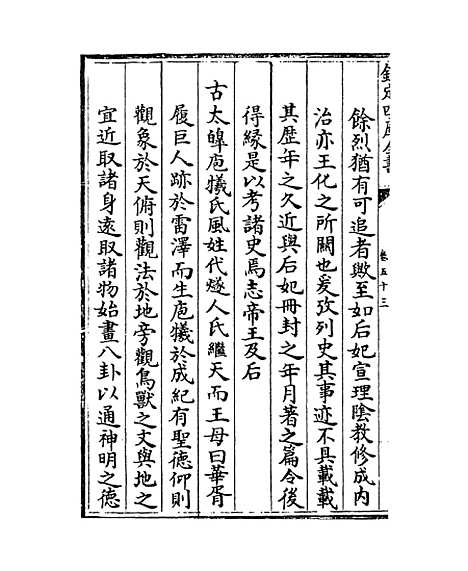 欽定四庫全書
卷五十三
餘烈猶有可追者歟至如后妃宣理陰教修成内
治亦王化之所關也爰攷列史其事迹不具載載
其歴年之久近與后妃冊封之年月著之篇令後
得緣是以考諸史焉志帝王及后
古太皥庖犧氏風姓代燧人氏繼天而王母曰華胥
履巨人跡於雷澤而生庖犧於成紀有聖德仰則
觀象於天俯則觀法於地旁觀鳥獸之文與地之
宜近取諸身遠取諸物始畫八卦以通神明之德